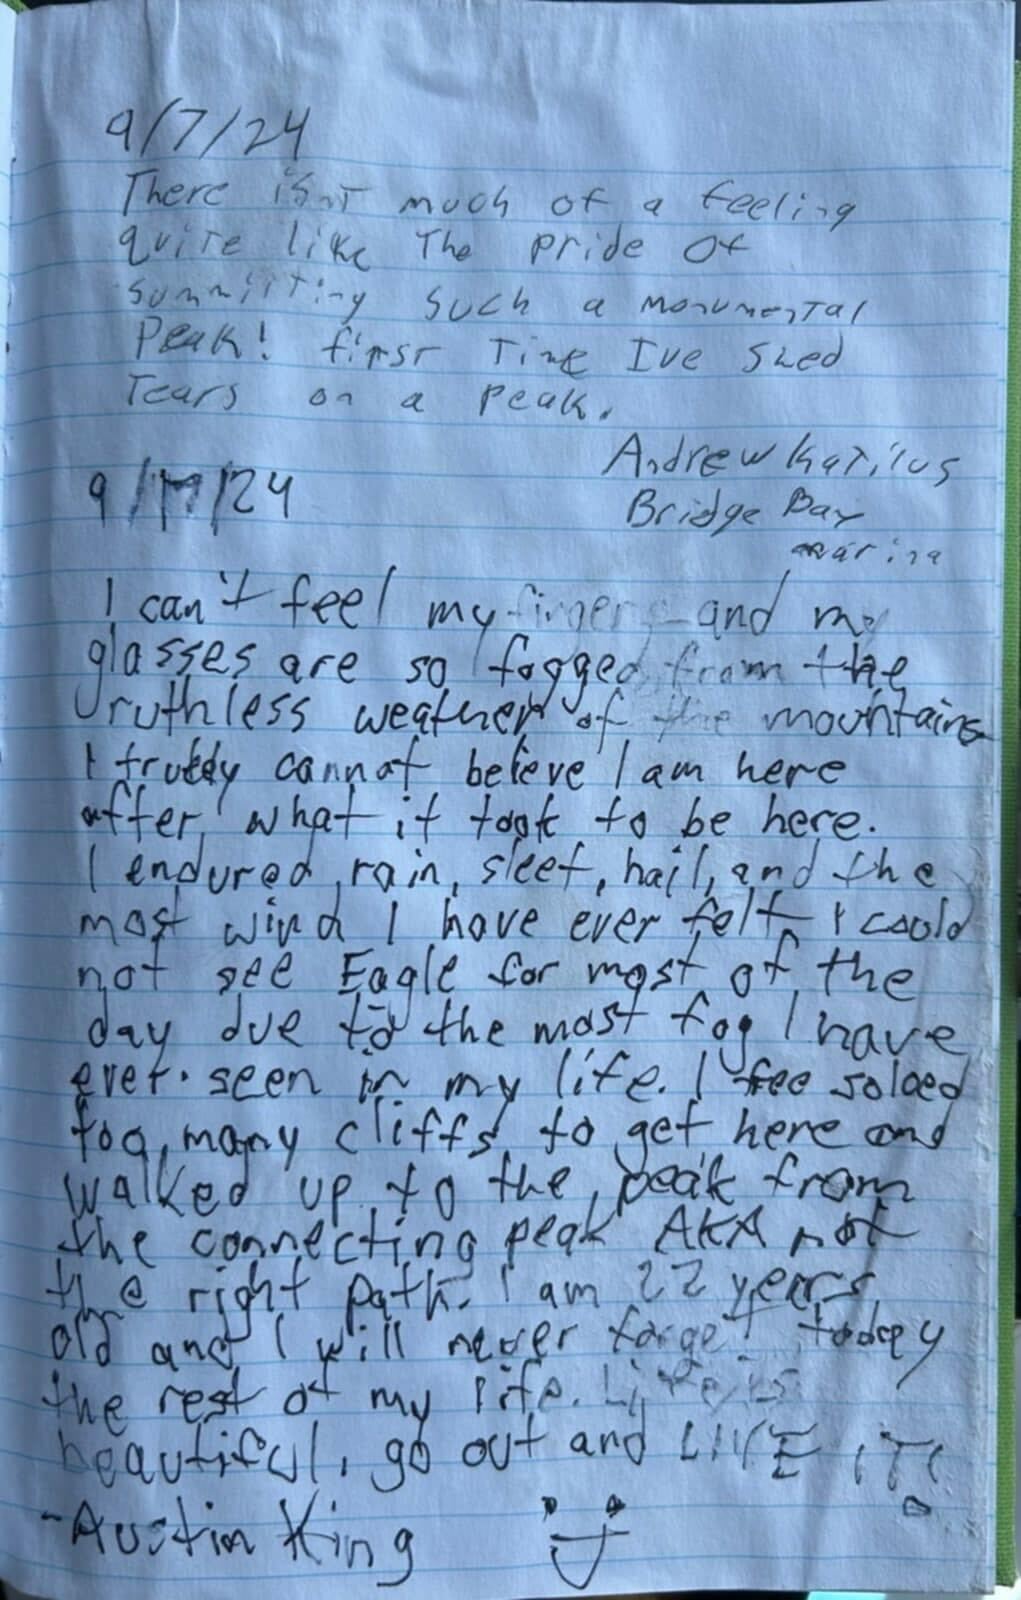 9/7/24
There isnt much of a feeling
quite like the pride of
summitting such a monumental
Peak! first Time Ive shed
Tears on a peak.
Andrew
Bridge Bay
marina
9/17/24
I can't feel my fingers and my
glasses are so fogged from the
ruthless weather of the mountains
I truly cannot believe I am here
after what it took to be here.
I endured rain, sleet, hail, and the
most wind I have ever felt I could
not see Eagle for most of the
day due to the most fog I have
ever seen in my life. I free soloed
too many cliffs to get here and
walked up to the peak from
the connecting peak AKA not
the right path. I am 22 years
old and I will never forget today
the rest of my life. Life is
beautiful, go out and LIVE IT!
-Austin King